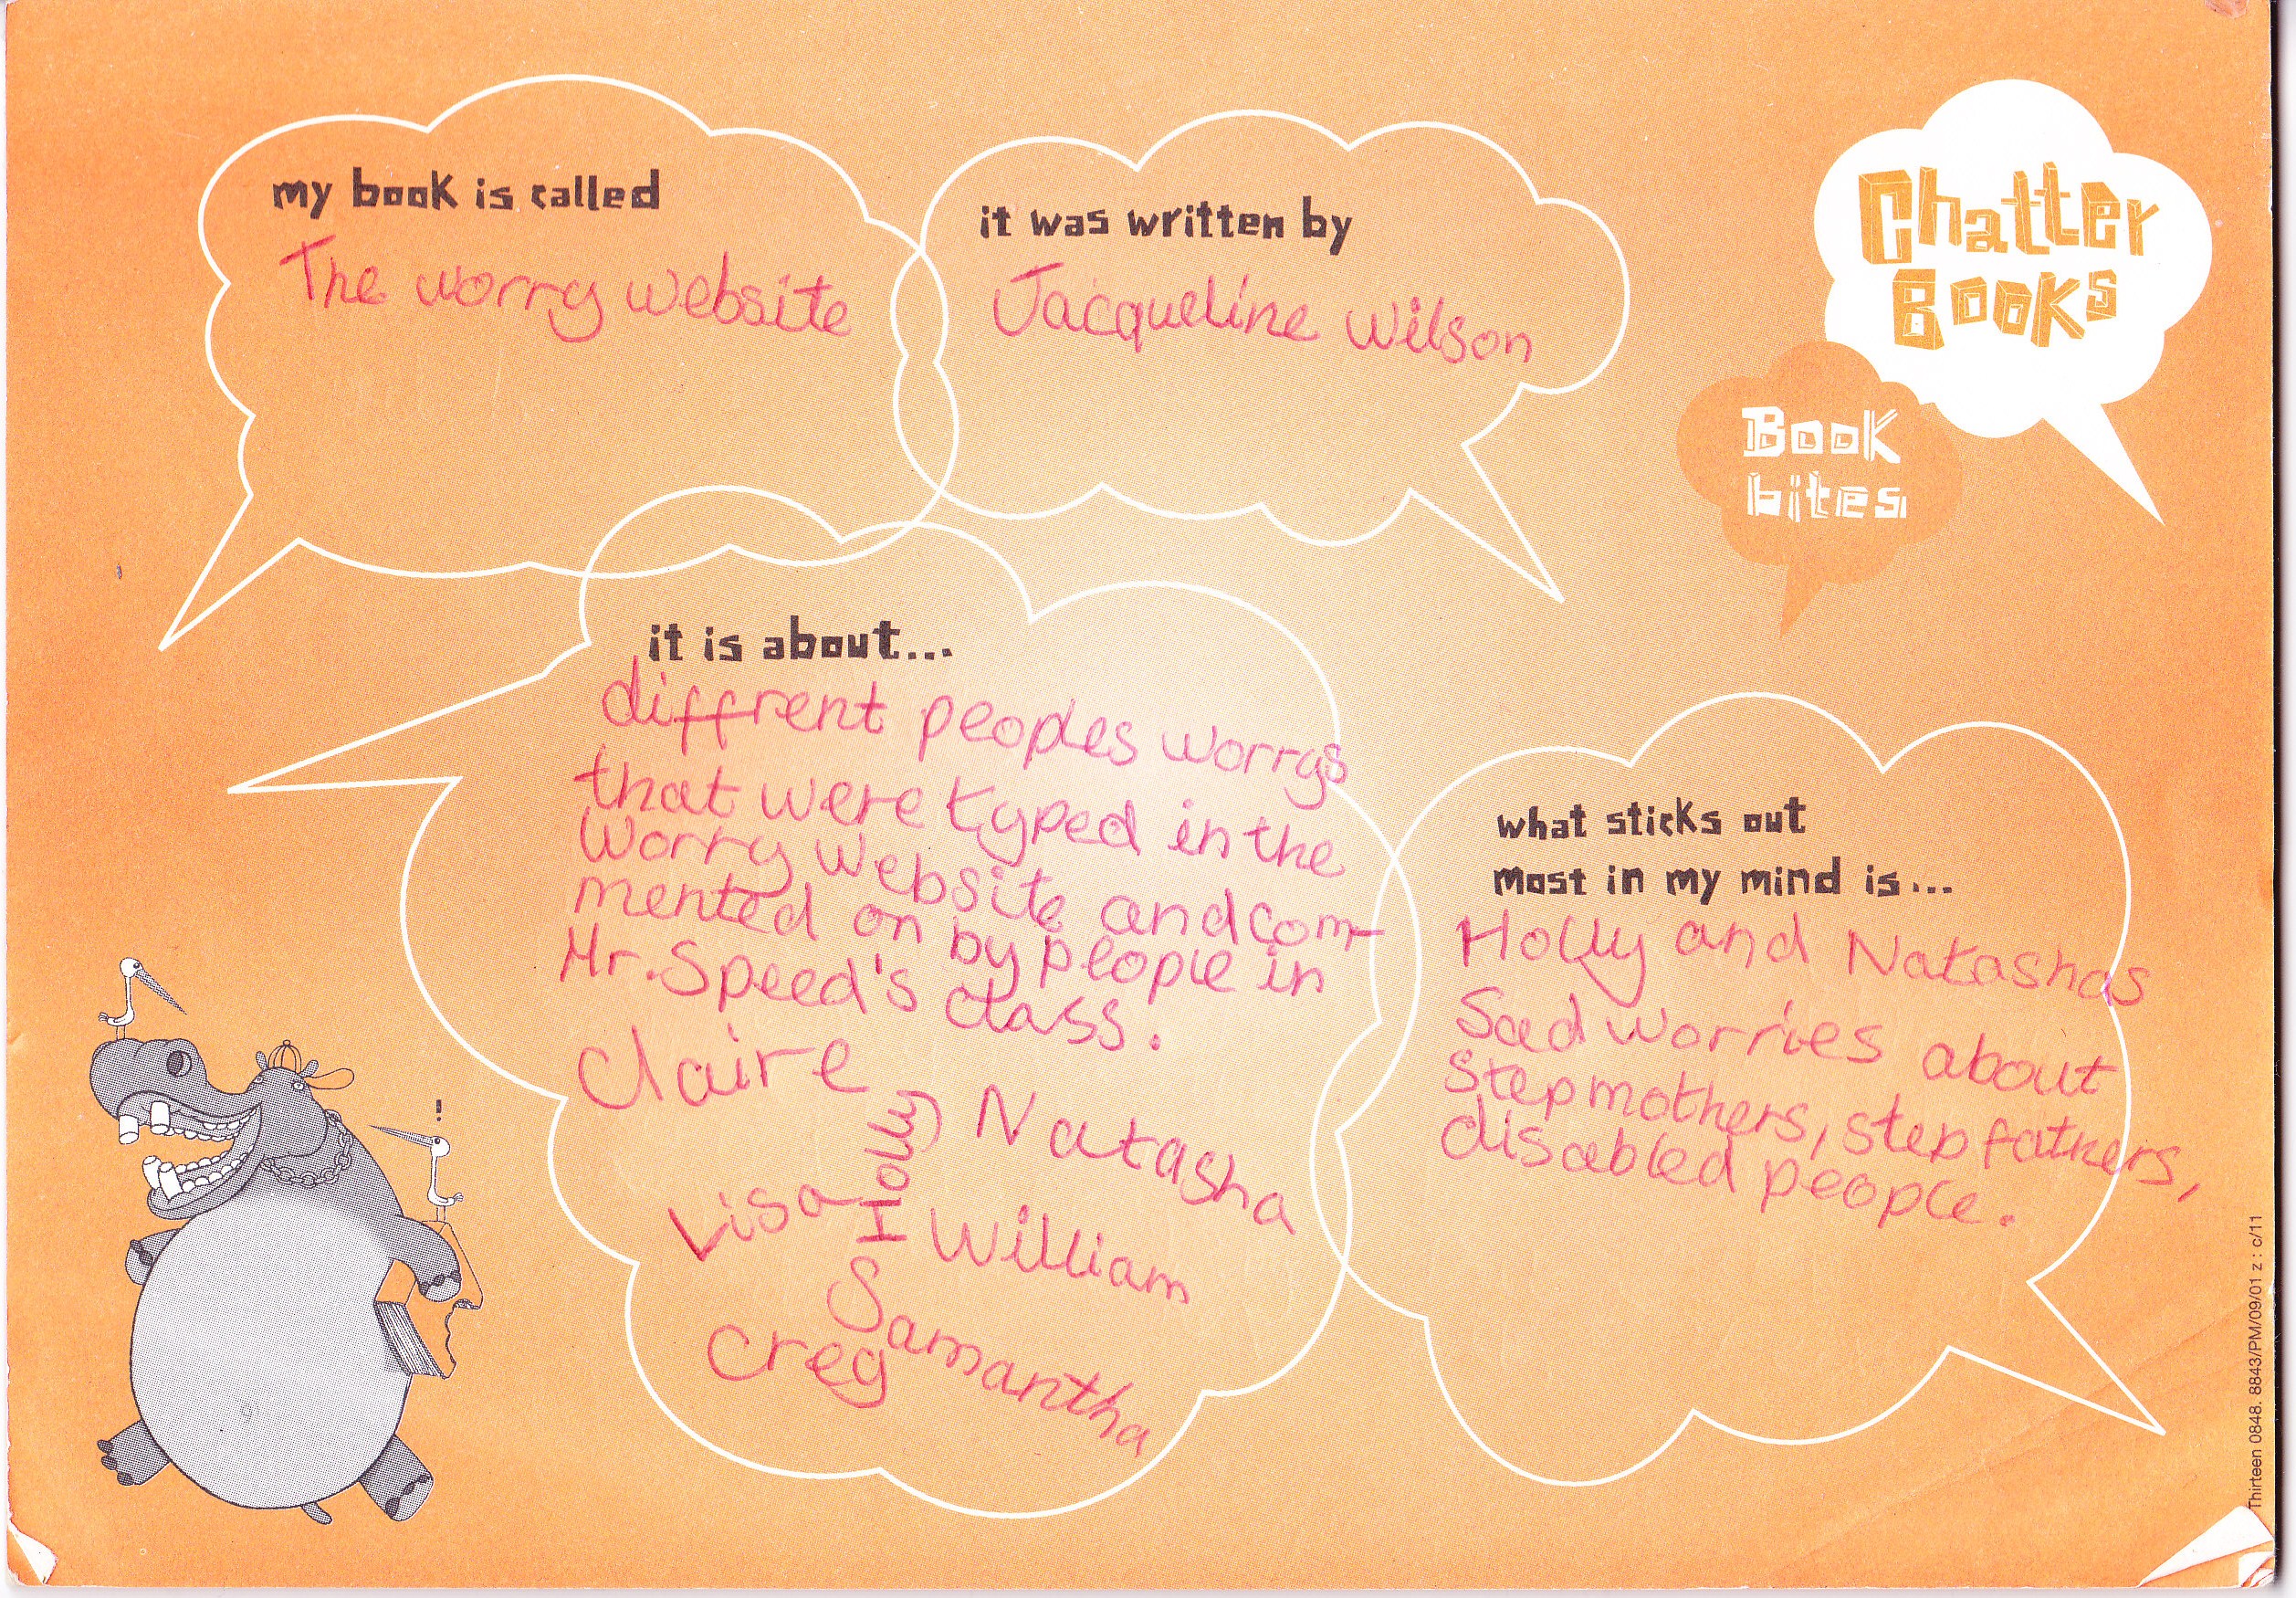 my book is called
The worry website
it was written by
Jacqueline Wilson
Chatter
Books
Book
bites
it is about...
diffrent peoples worrys
that were typed in the
Worry Website and com-
mented on by people in
Mr. Speed's class.
Claire
Holly
Natasha
Lisa
William
Samantha
Creg
what sticks out
most in my mind is...
Holly and Natashas
Sad worries about
stepmothers, step fathers,
disabled people.
!
Thirteen 0848. 8843/PM/09/01 z : c/11